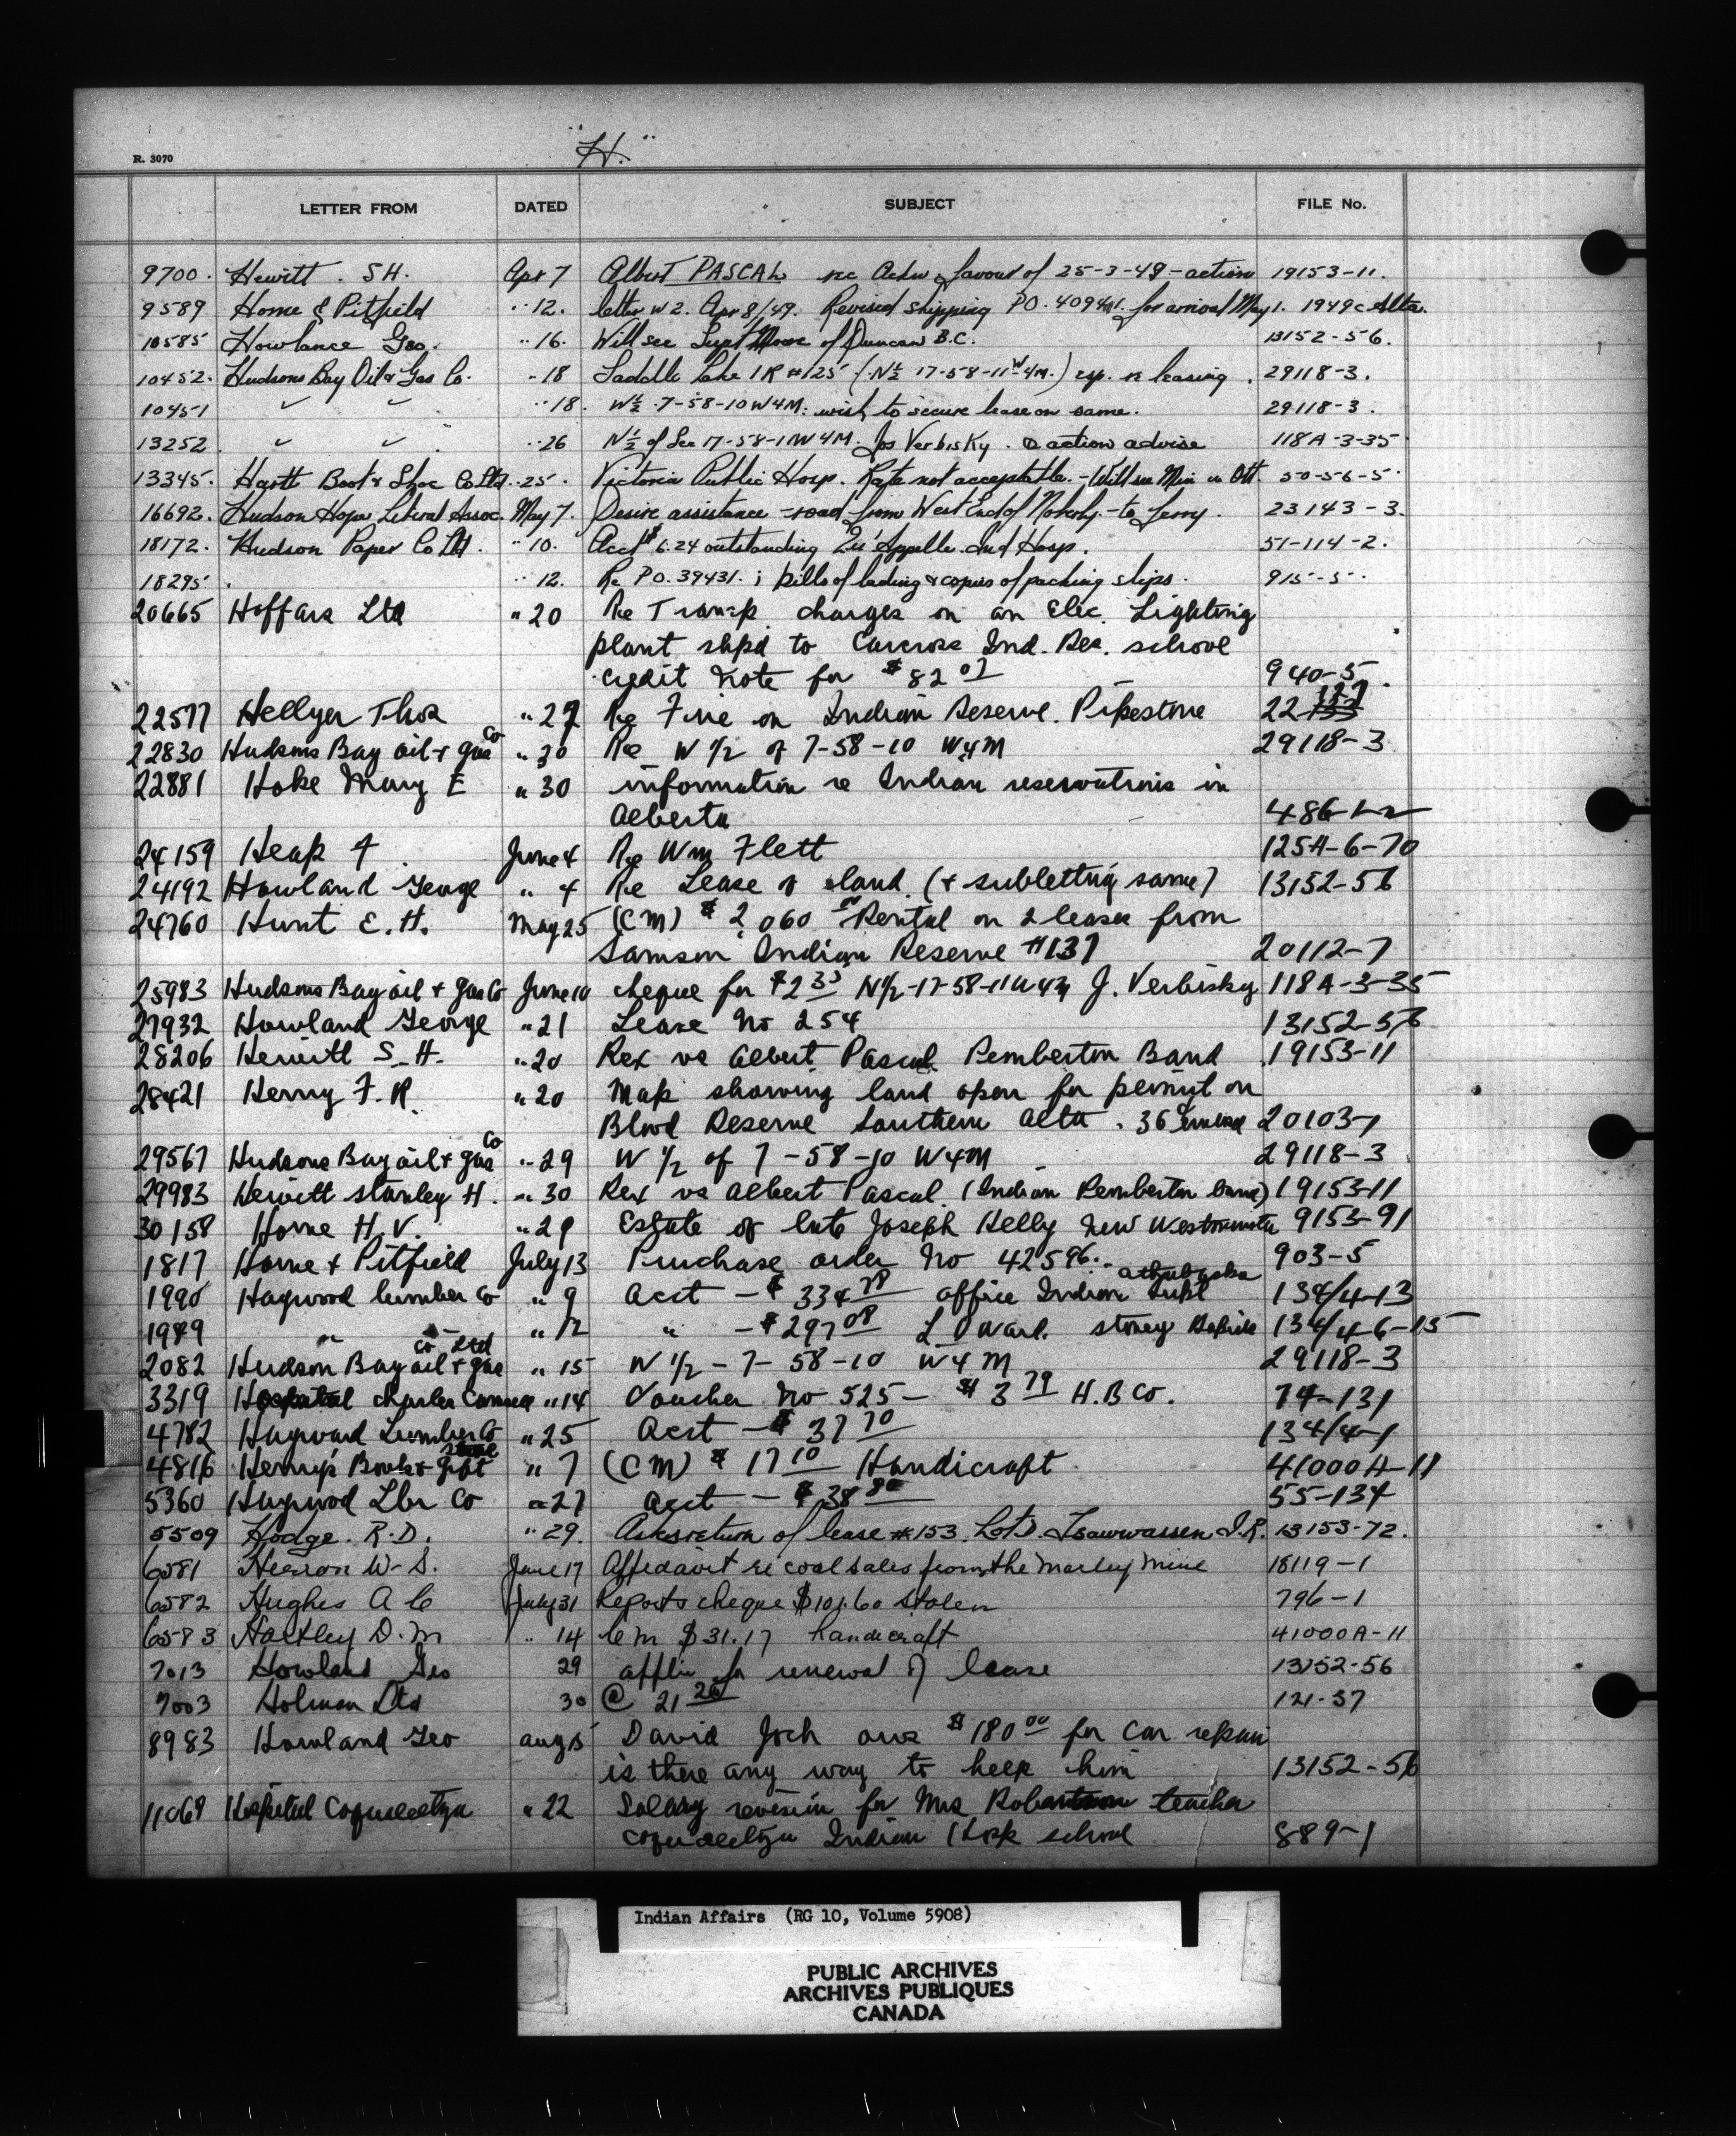 "H."
R. 3070
LETTER FROM DATED SUBJECT FILE No.
9700. Hewitt. S H. Apr 7 Albert PASCAL re favour of 25-3-49 - action 19153-11.
9589 Horne & Pitfield " 12. letter w 2. Apr 8/49. Revised shipping PO. for arrival May 1. 1949 c Alta.
10585 Howlance Geo. " 16. Will see Supt Moore of Duncan B.C. 13152-56.
10452. Hudsons Bay Oil & Gas Co. " 18 Saddle Lake IR #125 (N½ 17-58-11-W4M.) re leasing. 29118-3.
10451 " " " 18. W½ 7-58-10 W4M. wish to secure lease on same. 29118-3.
13252 " " " 26 N½ of Sec 17-58-11W4M. Jos Verbisky. action advise 118A-3-35
13345. Hartt Boot & Shoe Co Ltd. " 25. Victoria Public Hosp. Rate not acceptable. - Will see Min in Ott. 50-56-5
16692. Hudson Hope Liberal Assoc. May 7. Desire assistance - road from West End of Moberly - to ferry. 23143-3.
18172. Hudson Paper Co Ltd. " 10. Acct $6.24 outstanding Qu'Appelle Ind Hosp. 51-114-2.
18295 . " 12. Re PO. 39431. ; bills of lading & copies of packing slips. 915-5.
20665 Hoffars Ltd " 20 Re Transp. charges on an Elec. Lighting
plant shpd to Carcross Ind. Res. school
credit note for $82 07 940-5
22577 Hellyer Thos " 27 Re Fire on Indian Reserve. Pipestone 22 127
22830 Hudsons Bay oil & gas Co " 30 Re W 1/2 of 7-58-10 W4M 29118-3
22881 Hoke Mary E " 30 information re Indian reservations in
Alberta 486-1-2
24159 Heap F June 4 Re Wm Flett 125A-6-70
24192 Howland George " 4 Re Lease of land (& subletting same) 13152-56
24760 Hunt E. H. May 25 (CM) $2,060 Rental on 2 leases from
Samson Indian Reserve #137 20112-7
25983 Hudsons Bay oil & gas Co June 10 cheque for $2 35 N1/2-17-58-11W4M J. Verbisky 118A-3-35
27932 Howland George " 21 Lease No 254 13152-56
28206 Hewitt S_H. " 20 Rex vs Albert Pascal Pemberton Band 19153-11
28421 Henry F. R. " 20 Map showing land open for permit on
Blood Reserve Southern Alta. 36 19 20103-1
29567 Hudsons Bay oil & gas Co " 29 W 1/2 of 7-58-10 W4M 29118-3
29983 Hewitt Stanley H. " 30 Rex vs Albert Pascal (Indian Pemberton band) 19153-11
30158 Horne H. V. " 29 Estate of late Joseph Kelly New Westminster 9153-91
1817 Horne & Pitfield July 13 Purchase order No 42596. 903-5
1990 Haywood lumber Co " 9 Acct - $334 78 office Indian Supt athabaska 134/4-13
1989 " " " 12 " - $297 08 L D Ward. Stoney Rapids 134/4-6-15
2082 Hudson Bay oil & gas Co Ltd " 15 W 1/2 - 7-58-10 W4M 29118-3
3319 Hospital Charles Camsell " 14 Voucher No 525 - $3 79 H.B Co. 74-131
4782 Hayward Lumber Co " 25 Acct - $37 70 134/4-1
4816 Henry's Book & gift store " 7 (CM) $17 10 Handicraft 41000A-11
5360 Haywood Lbr Co " 27 acct - $38 80 55-134
5509 Hodge. R.D. " 29. Asks return of lease #153. Lot D. Tsawwassen I.R. 13153-72.
6581 Herron W-S. June 17 Affedavit re coal sales from the Morley Mine 18119-1
6582 Hughes A C July 31 Reports cheque $101.60 stolen 796-1
6583 Hartley D. M " 14 C M $31.17 handicraft 41000A-11
7013 Howland Geo 29 applin for renewal of lease 13152-56
7003 Holman Ltd 30 @ 21 26 121-37
8983 Howland Geo Aug 15 David Joch owes $180 00 for car repair
is there any way to help him 13152-56
11069 Hospital Coqualeetza " 22 Salary revision for Mrs Robertson teacher
Coqualeetza Indian Hosp school 889-1
Indian Affairs (RG 10, Volume 5908)
PUBLIC ARCHIVES
ARCHIVES PUBLIQUES
CANADA